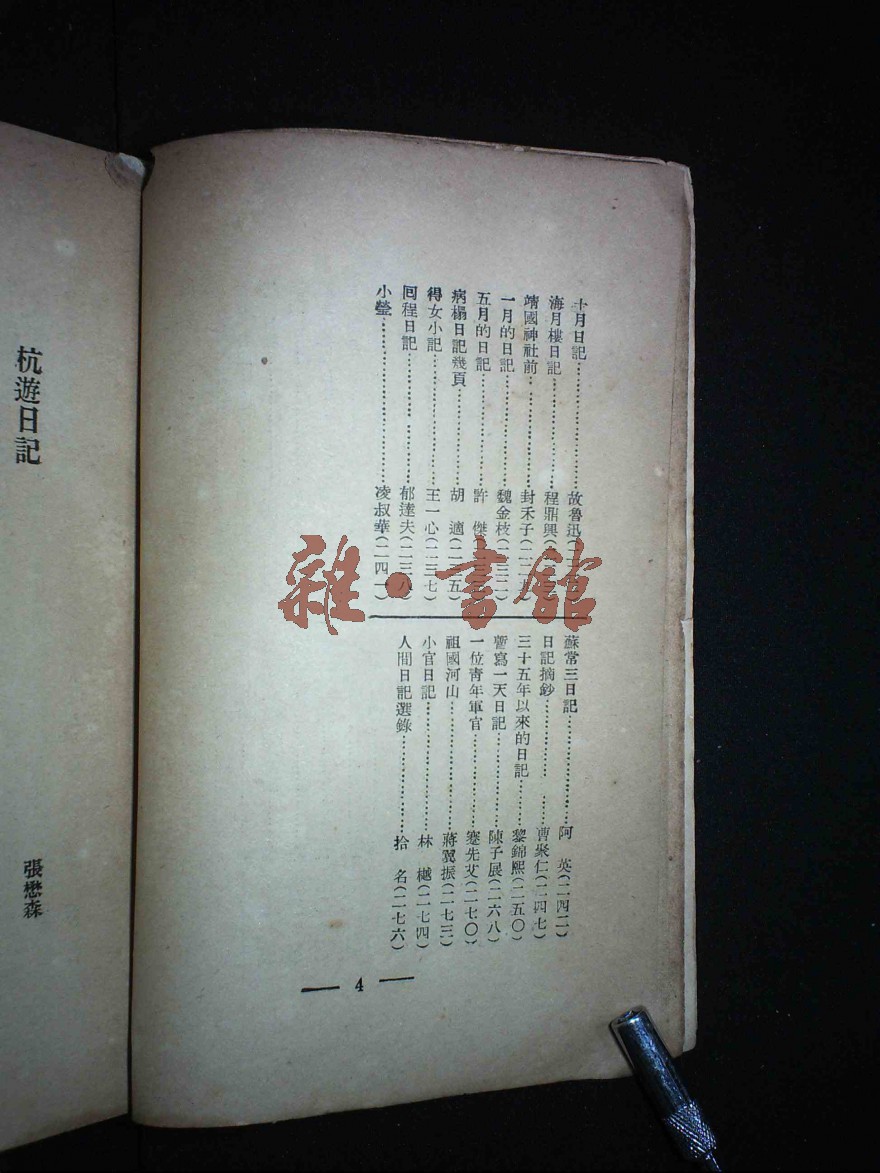 十月日記……………故魯迅(二
海月樓日記……………程鼎興(二
靖國神社前……………封禾子(二二
一月的日記……………魏金枝(二三二)
五月的日記……………許 傑(二三
病榻日記幾頁……………胡 適(二三五)
得女小記……………王一心(二三七)
回程日記……………郁達夫(二三八)
小瑩……………凌叔華(二四一)
蘇常三日記……………阿 英(二四二)
日記摘鈔……………曹聚仁(二四七)
三十五年以來的日記……………黎錦熙(二五〇)
暫寫一天日記……………陳子展(二六八)
一位青年軍官……………蹇先艾(二七〇)
祖國河山……………蔣翼振(二七三)
小官日記……………林 樾(二七四)
人間日記選錄……………拾 名(二七六)
— 4 —
杭遊日記
張懋森
雜·書館